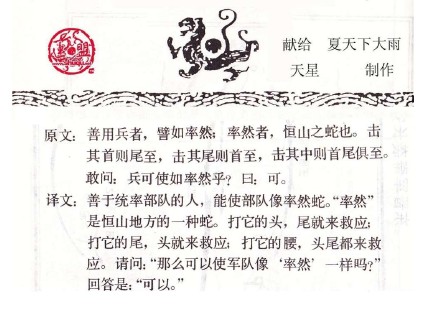 献给 夏天下大雨
天星 制作
原文：善用兵者，譬如率然；率然者，恒山之蛇也。击
其首则尾至，击其尾则首至，击其中则首尾俱至。
敢问：兵可使如率然乎？曰：可。
译文：善于统率部队的人，能使部队像率然蛇。“率然”
是恒山地方的一种蛇。打它的头，尾就来救应；
打它的尾，头就来救应；打它的腰，头尾都来救
应。请问：“那么可以使军队像‘率然’一样吗？”
回答是：“可以。”